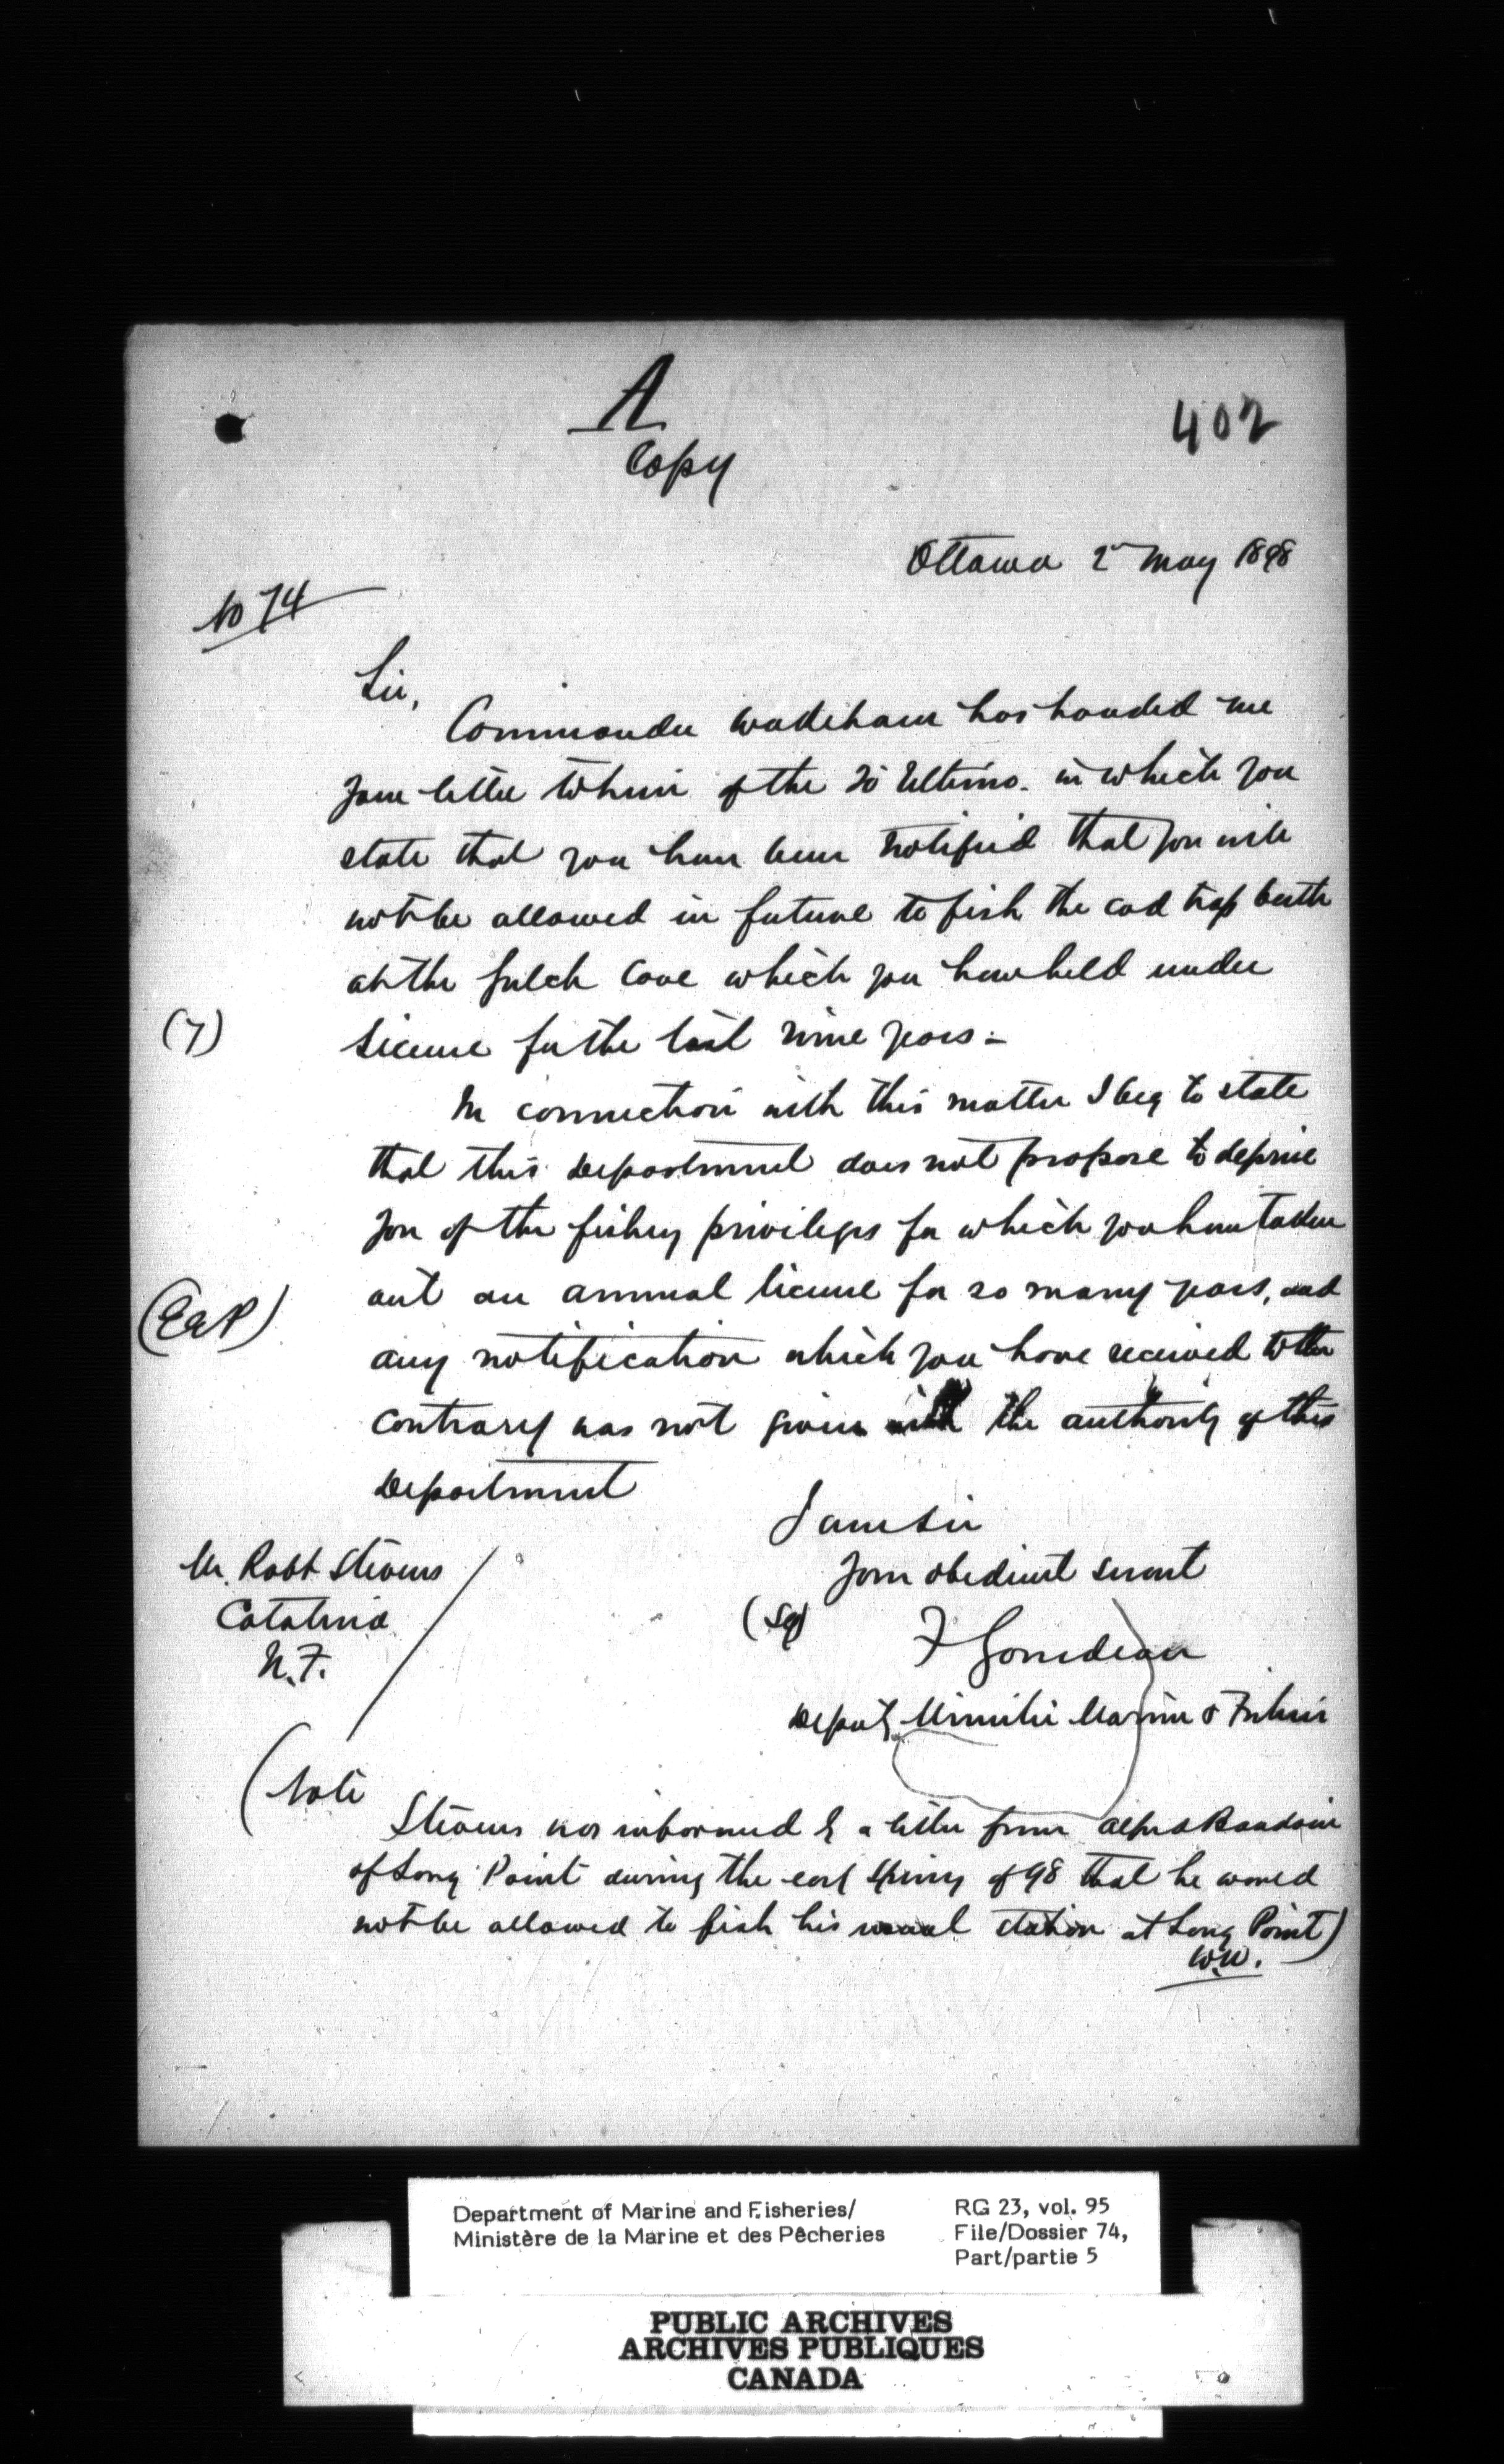 A
Copy
402
Ottawa 2nd May 1898
No 74
Sir,
Commander Wakeham has handed me
your letter to him of the 20 Ultimo. in which you
state that you have been notified that you will
not be allowed in future to fish the cod trap berth
at the Gulch Cove which you have held under
license for the last nine years -
(7)
In connection with this matter I beg to state
that this Department does not propose to deprive
you of the fishery privileges for which you have taken
out an annual license for so many years, and
(EEP)
any notification which you have received to the
contrary was not given with the authority of this
Department
I am Sir
Your obedient servant
(Sg) F Gourdeau
Deputy Minister Marine & Fisheries
Mr. Robt Stevens
Catalina
N.F.
(Note
Stevens was informed by a letter from Alfred Beaudoin
of Long Point during the early Spring of 98 that he would
not be allowed to fish his usual station at Long Point)
W.W.
Department of Marine and Fisheries/
Ministère de la Marine et des Pêcheries
RG 23, vol. 95
File/Dossier 74,
Part/partie 5
PUBLIC ARCHIVES
ARCHIVES PUBLIQUES
CANADA